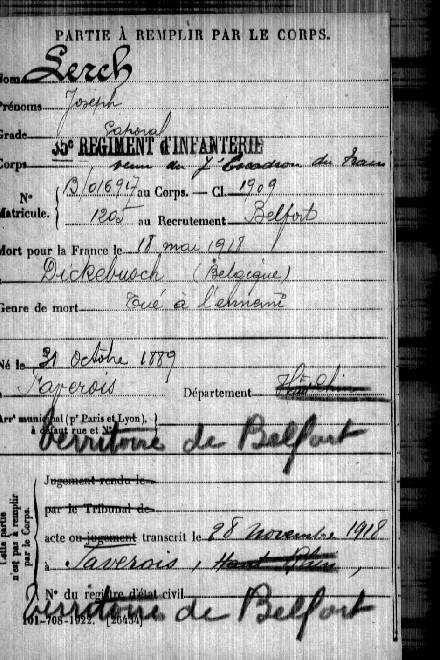 PARTIE À REMPLIR PAR LE CORPS.
Nom Lerch
Prénoms Joseph
Grade Caporal
35e REGIMENT d'INFANTERIE
Corps venu du 7e Escadron du Train
No B/01697 au Corps. — Cl. 1909
Matricule. 1205 au Recrutement Belfort
Mort pour la France le 18 mai 1918
à Dickebusch (Belgique)
Genre de mort Tué à l'ennemi
Né le 31 Octobre 1889
à Faverois Département Ht Rhin
Arrt municipal (pr Paris et Lyon),
à défaut rue et No
territoire de Belfort
Cette partie
n'est pas à remplir
par le Corps.
Jugement rendu le
par le Tribunal de
acte ou jugement transcrit le 28 Novembre 1918
à Faverois, Haut Rhin,
No du registre d'état civil
territoire de Belfort
101-708-1922. [26434]